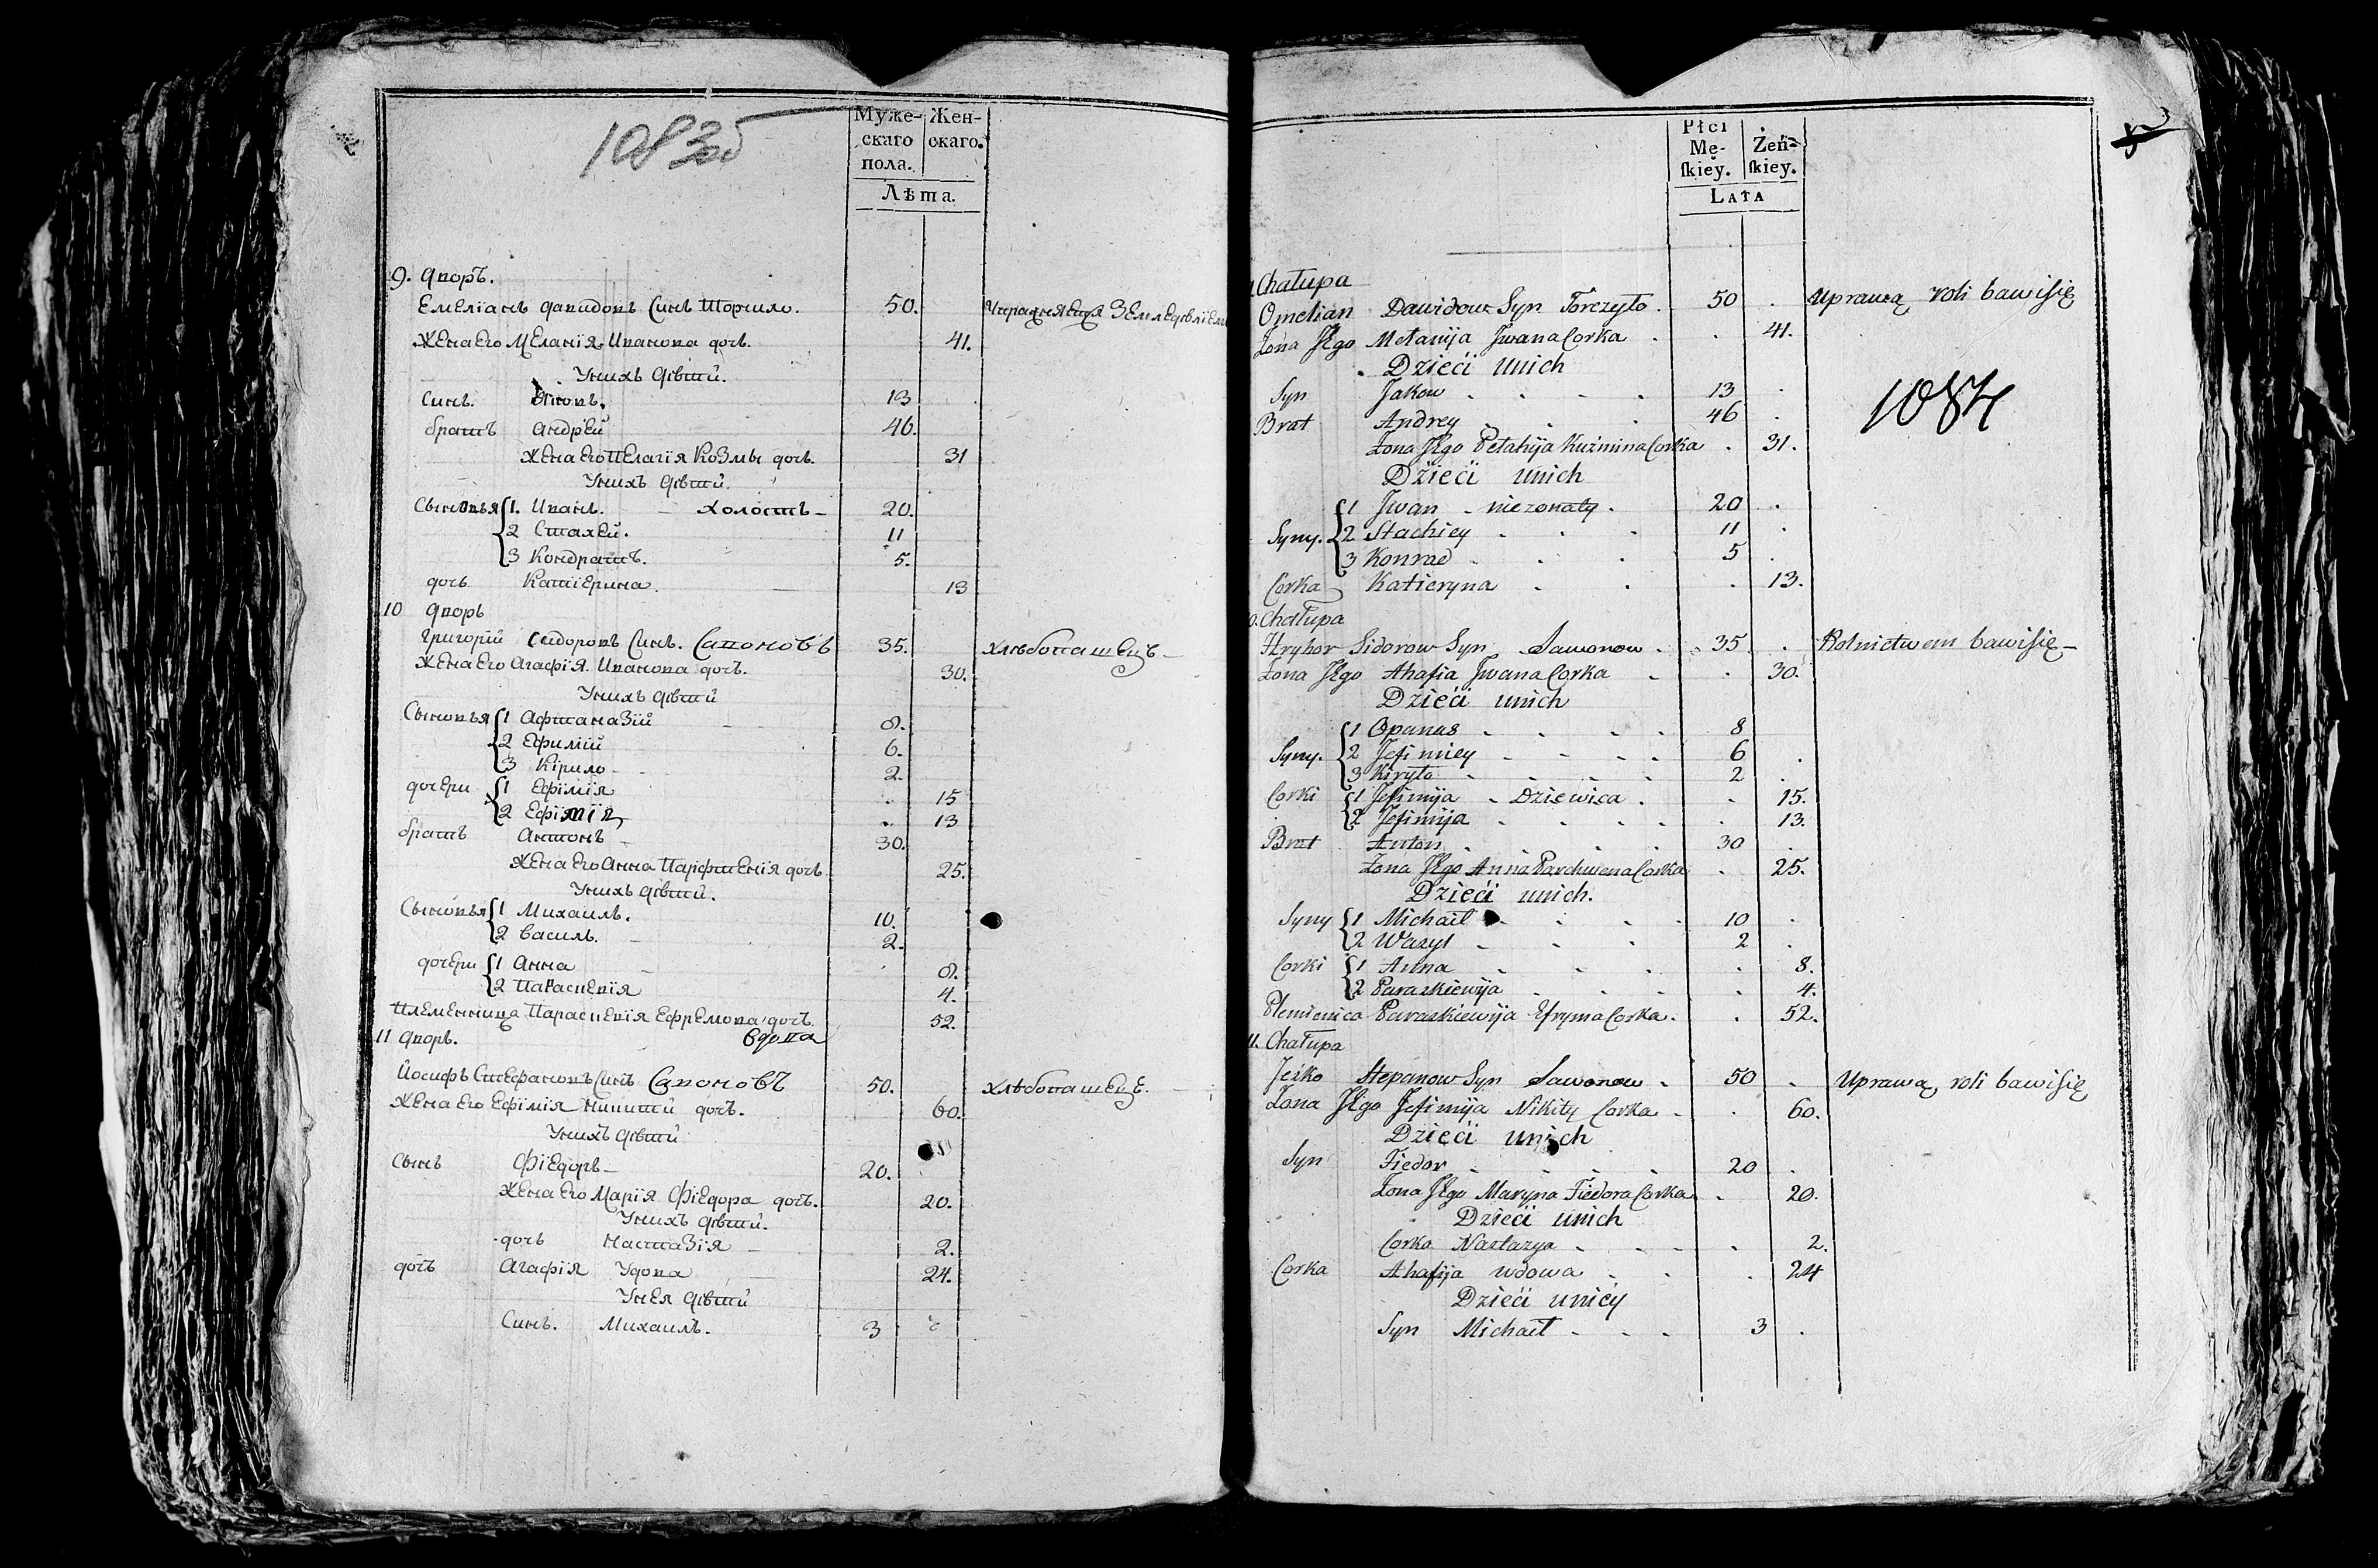 1083об
Муже- Жен-
скаго скаго.
пола.
Лѣта.
9. Дворъ.
Емеліанъ Давидовъ Синъ Торчило. 50. Упражняещя Земледѣліем
Жена Его Меланія Иванова дочъ. 41.
Унихъ Дѣтй.
Синъ. Яковъ. 13
братъ Андрей 46.
Жена его Пелагія Козмы дочъ. 31
Унихъ Дѣтй.
Сыновья 1. Иванъ. – Холостъ – 20.
2 Стахей. 11
3 Кондратъ. 5.
дочъ Катіерина. 13
10 Дворъ
Григорій Сидоровъ Синъ. Савоновъ 35. Хлѣбопашецъ –
Жена его Агафія Иванова дочъ. 30.
Унихъ Дѣтй
Сыновья 1 Афтаназій 8.
2 Ефимій 6.
3 Кірило 2.
дочери 1 Ефімія 15
2 Ефімія 13
братъ Антонъ – 30.
Жена Его Анна Парфтенія дочъ. 25.
Унихъ Дѣтй.
Сыновья 1 Михаилъ. 10.
2 Василъ. 2.
дочери 1 Анна 8.
2 Параскевія 4.
Племенница Параскевія Ефремова дочъ 52.
11 Дворъ. Вдова
Йосифъ Стефановъ Синъ Савоновъ 50. Хлѣбопашецъ.
Жена Его Ефімія Никитй дочъ. 60.
Унихъ Дѣтй
Сынъ Фіедоръ – 20.
Жена Его Марія Фіедора дочъ. 20.
Унихъ дѣтй.
дочъ Настазія 2.
дочъ Агафія Удова 24.
Унея Дѣтй
Синъ. Михаилъ. 3
Płci
Mę- Żeń-
ſkiey. ſkiey.
LATA
Chałupa
Omelian Dawidow Syn Torczyło. 50 . Uprawą roli bawiſię
Żona JEgo Mełanija Jwana Corka . . 41.
Dzieći Unich
Syn Jakow 13 .
1084
Brat Andrey 46 .
Żona JEgo Pełahija Kuźmina Corka . 31.
Dzieći unich
Syny. 1 Jwan – nieżonaty. 20 .
2 Stachiey 11 .
3 Konrad 5 .
Corka Katieryna . 13.
0. Chałupa
Hryhor Sidorow Syn Sawonow . 35 . Rolnictwem bawiſię –
Żona JEgo Ahafia Jwana Corka . 30.
Dzieći unich
Syny. 1 Opanas 8
2 Jefimiey 6 .
3 Kiryło 2 .
Corki 1 Jefimija – Dziewica . 15.
2 Jefimija . 13.
Brat Anton 30 .
Żona JEgo Anna Parchwena Corka . 25.
Dzieći unich.
Syny 1 Michaił 10 .
2 Wasyl 2 .
Corki 1 Anna . 8.
2 Paraskiewija . 4.
Plemienica Paraskiewija Efryma Corka . 52.
11. Chałupa
Jeśko Stepanow Syn Sawonow . 50 . Uprawą roli bawiſię
Żona JEgo Jefimija Nikity Corka . 60.
Dzieći unich
Syn Fiedor 20 .
Żona JEgo Maryna Fiedora Corka . 20.
Dzieći unich
Corka Nastazya . 2.
Corka Ahafija wdowa . 24
Dzieći unicy
Syn Michaił 3 .